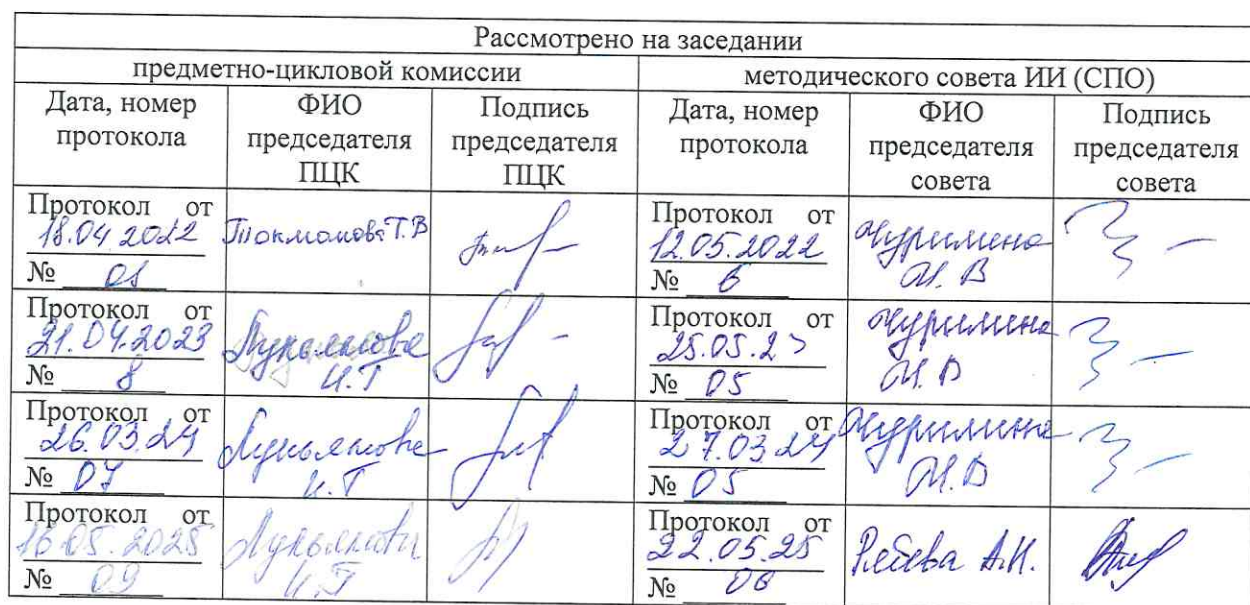 Рассмотрено на заседании
предметно-цикловой комиссии
методического совета ИИ (СПО)
Дата, номер
протокола
ФИО
председателя
ПЦК
Подпись
председателя
ПЦК
Дата, номер
протокола
ФИО
председателя
совета
Подпись
председателя
совета
Протокол от
18.04 2022
№ 01
Токмакова Т.В
Протокол от
12.05.2022
№ 6
Чуримина
И. В
Протокол от
21.04.2023
№ 8
Лукьянова
И.Г
Протокол от
25.05.23
№ 05
Чуримина
И. В
Протокол от
26.03.24
№ 07
Лукьянова
И.Г
Протокол от
27.03.24
№ 05
Чуримина
И.В
Протокол от
16.05.2025
№ 09
Лукьянова
И.Г
Протокол от
22.05.25
№ 06
А.Н.